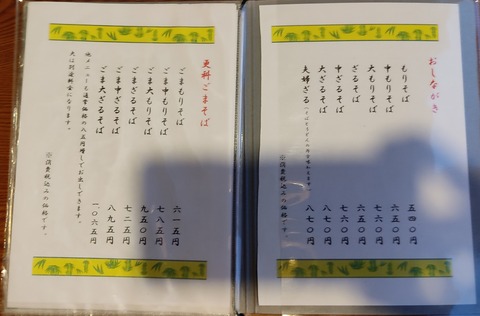 おしながき
もりそば 五四〇円
中もりそば 六五〇円
大もりそば 七六〇円
ざるそば 六五〇円
中ざるそば 七六〇円
大ざるそば 八七〇円
夫婦ざる 八七〇円
※消費税込みの価格です。
更科ごまそば
ごまもりそば 六一五円
ごま中もりそば 七八五円
ごま大もりそば 九五〇円
ごまざるそば 七二五円
ごま中ざるそば 八九五円
ごま大ざるそば 一〇六五円
他メニューも通常価格の八五円増しでお出しできます。
大は別途料金になります。
※消費税込みの価格です。